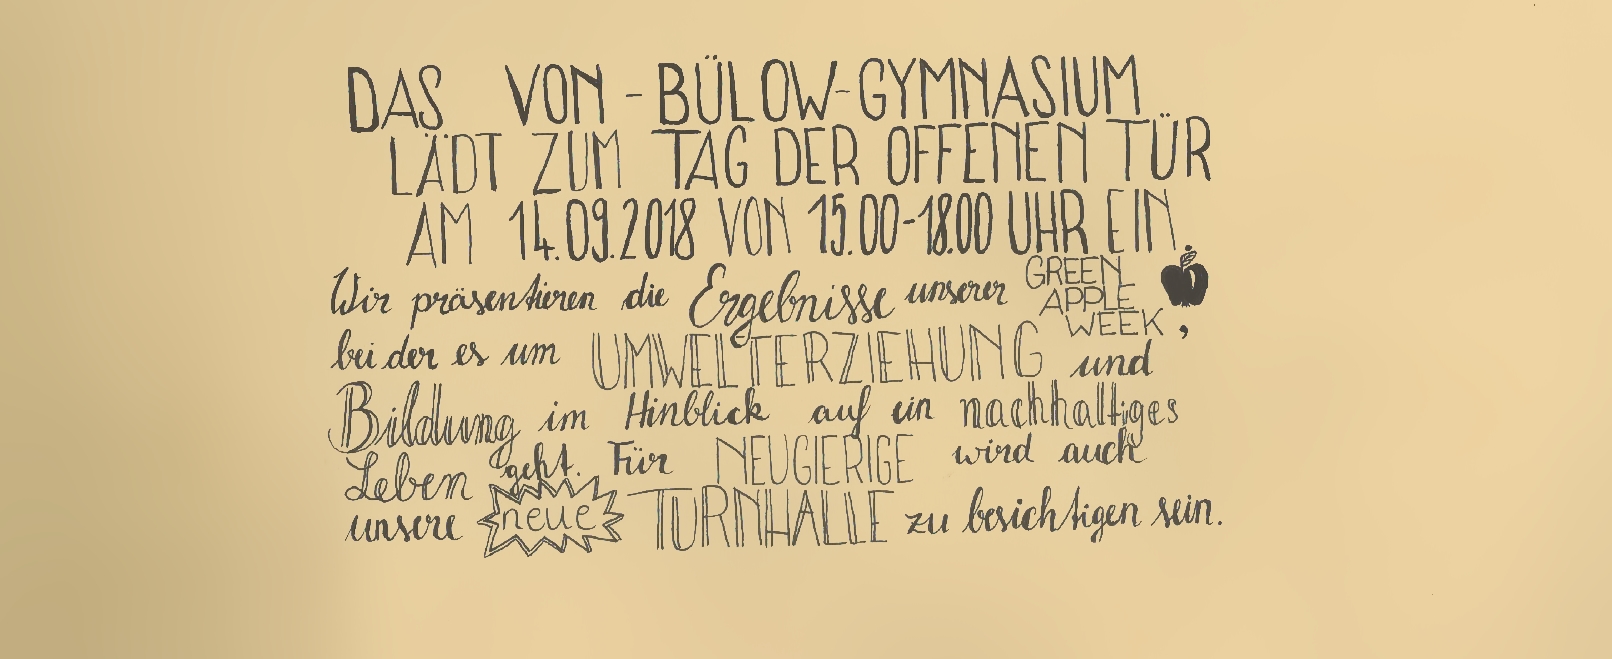 DAS VON-BÜLOW-GYMNASIUM
LÄDT ZUM TAG DER OFFENEN TÜR
AM 14.09.2018 VON 15.00-18.00 UHR EIN.
Wir präsentieren die Ergebnisse unserer GREEN
APPLE
WEEK,
bei der es um UMWELTERZIEHUNG und
Bildung im Hinblick auf ein nachhaltiges
Leben geht. Für NEUGIERIGE wird auch
unsere neue TURNHALLE zu besichtigen sein.